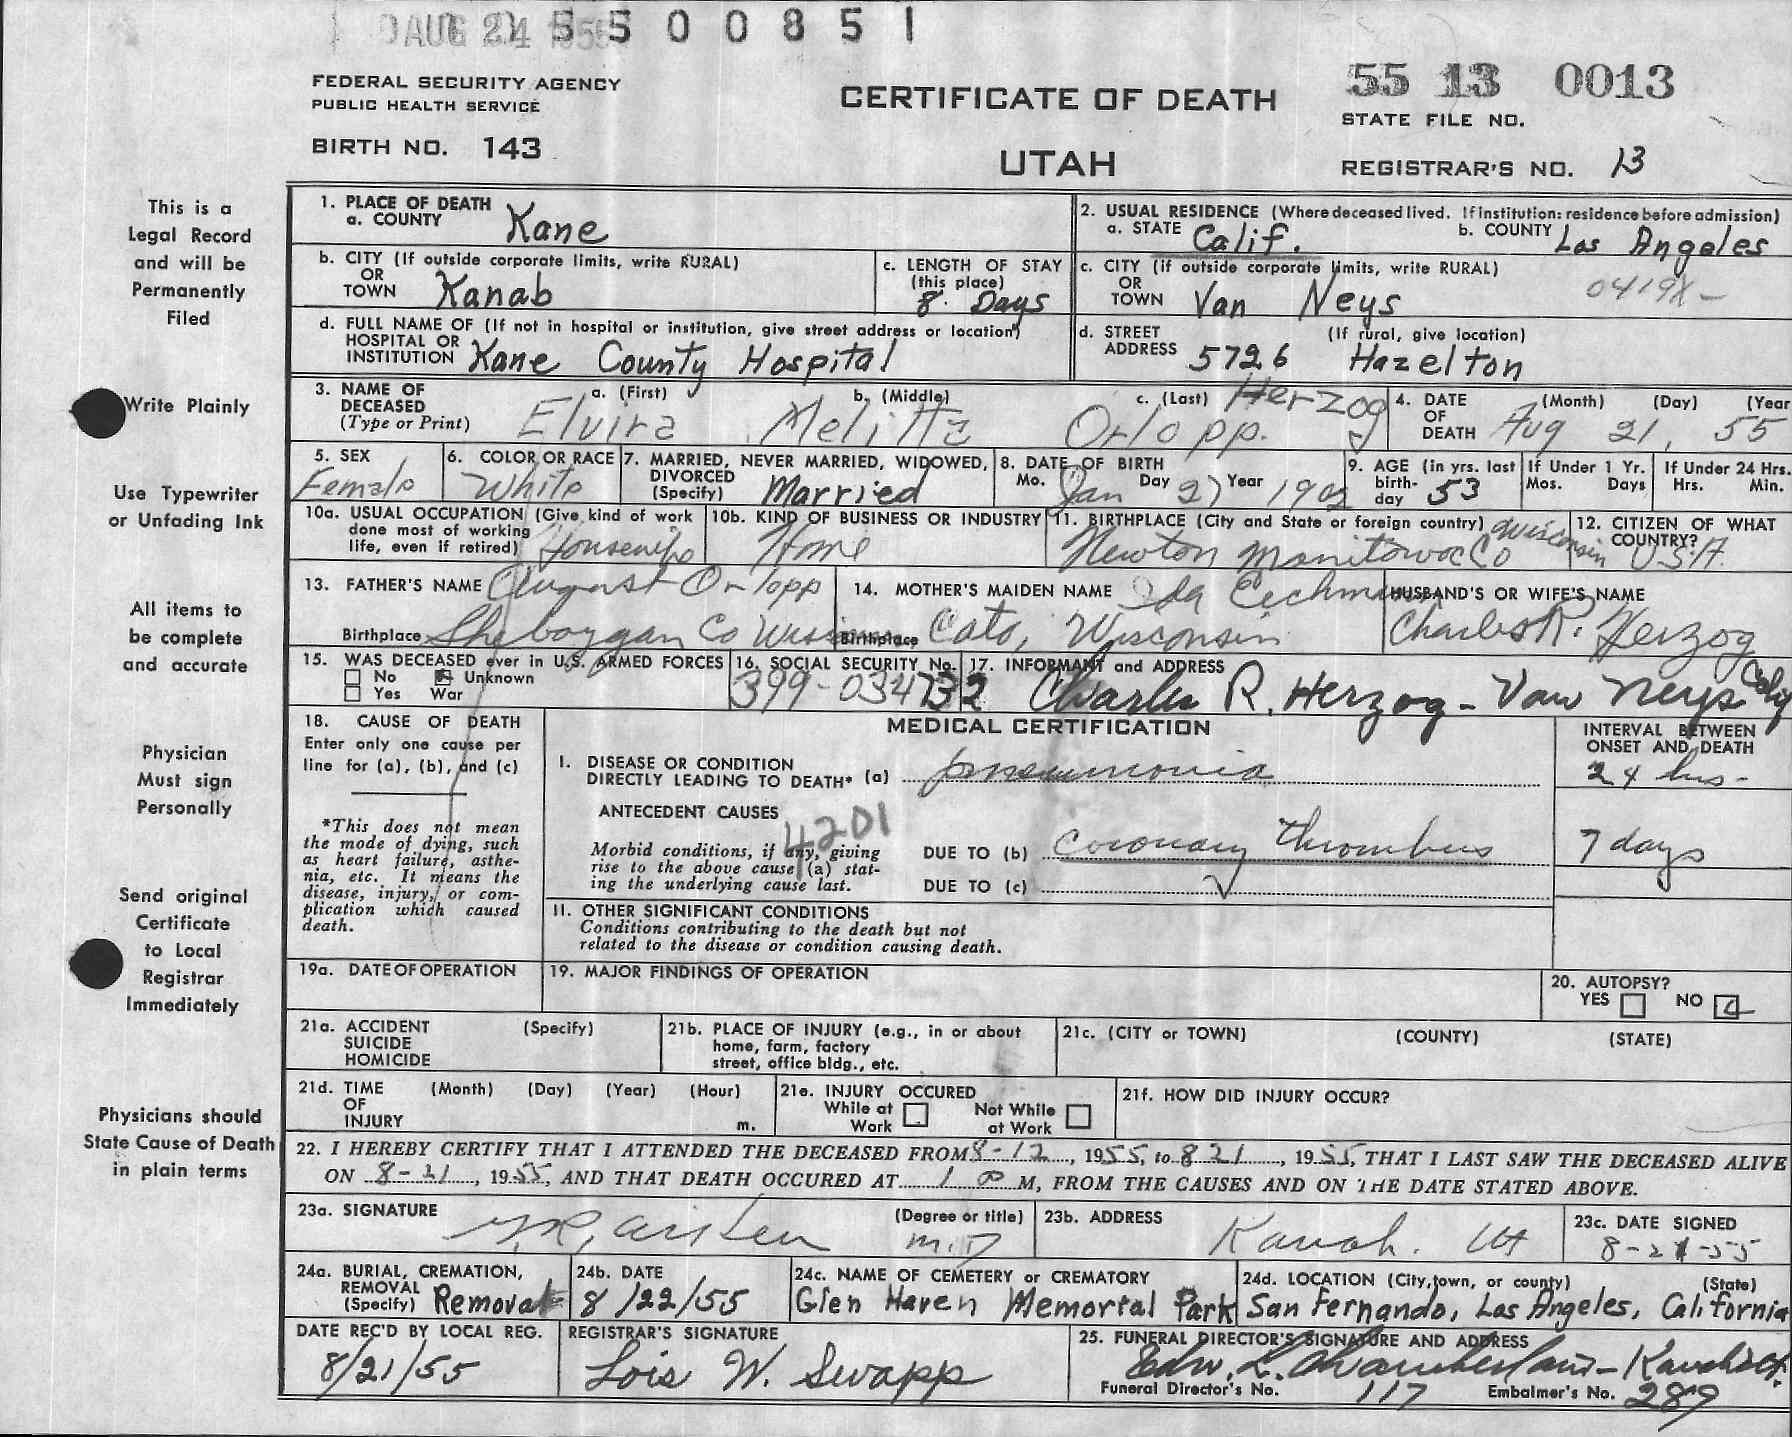 AUG 24 1955 5500851
FEDERAL SECURITY AGENCY
PUBLIC HEALTH SERVICE
BIRTH NO. 143
CERTIFICATE OF DEATH
UTAH
55 13 0013
STATE FILE NO.
REGISTRAR'S NO. 13
This is a
Legal Record
and will be
Permanently
Filed
Write Plainly
Use Typewriter
or Unfading Ink
All items to
be complete
and accurate
Physician
Must sign
Personally
Send original
Certificate
to Local
Registrar
Immediately
Physicians should
State Cause of Death
in plain terms
1. PLACE OF DEATH
a. COUNTY Kane
2. USUAL RESIDENCE (Where deceased lived. If institution: residence before admission)
a. STATE Calif. b. COUNTY Los Angeles
b. CITY (If outside corporate limits, write RURAL)
OR
TOWN Kanab
c. LENGTH OF STAY
(this place)
8 Days
c. CITY (if outside corporate limits, write RURAL)
OR
TOWN Van Neys
0419X-
d. FULL NAME OF (If not in hospital or institution, give street address or location)
HOSPITAL OR
INSTITUTION Kane County Hospital
d. STREET (If rural, give location)
ADDRESS 5726 Hazelton
3. NAME OF
DECEASED
(Type or Print)
a. (First) b. (Middle) c. (Last) Herzog
Elvira Melitta Orlopp.
4. DATE
OF
DEATH
(Month) (Day) (Year
Aug 21, 55
5. SEX
Female
6. COLOR OR RACE
White
7. MARRIED, NEVER MARRIED, WIDOWED,
DIVORCED
(Specify) Married
8. DATE OF BIRTH
Mo. Jan Day 27 Year 1902
9. AGE (in yrs. last
birth-
day 53
If Under 1 Yr.
Mos. Days
If Under 24 Hrs.
Hrs. Min.
10a. USUAL OCCUPATION (Give kind of work
done most of working
life, even if retired) Housewife
10b. KIND OF BUSINESS OR INDUSTRY
Home
11. BIRTHPLACE (City and State or foreign country)
Newton Manitowoc Co Wisconsin
12. CITIZEN OF WHAT
COUNTRY?
U.S.A.
13. FATHER'S NAME August Orlopp
Birthplace Sheboygan Co
14. MOTHER'S MAIDEN NAME Ida
Birthplace Cato, Wisconsin
HUSBAND'S OR WIFE'S NAME
Charles R. Herzog
15. WAS DECEASED ever in U.S. ARMED FORCES
No Unknown
Yes War
16. SOCIAL SECURITY No.
399-034732
17. INFORMANT and ADDRESS
Charles R. Herzog - Van Neys Calif
18. CAUSE OF DEATH
Enter only one cause per
line for (a), (b), and (c)
*This does not mean
the mode of dying, such
as heart failure, asthe-
nia, etc. It means the
disease, injury, or com-
plication which caused
death.
MEDICAL CERTIFICATION
I. DISEASE OR CONDITION
DIRECTLY LEADING TO DEATH* (a) pneumonia
ANTECEDENT CAUSES
4201
Morbid conditions, if any, giving
rise to the above cause (a) stat-
ing the underlying cause last.
DUE TO (b) Coronary thrombus
DUE TO (c)
II. OTHER SIGNIFICANT CONDITIONS
Conditions contributing to the death but not
related to the disease or condition causing death.
INTERVAL BETWEEN
ONSET AND DEATH
24 hrs-
7 days
19a. DATE OF OPERATION
19. MAJOR FINDINGS OF OPERATION
20. AUTOPSY?
YES NO
21a. ACCIDENT (Specify)
SUICIDE
HOMICIDE
21b. PLACE OF INJURY (e.g., in or about
home, farm, factory
street, office bldg., etc.
21c. (CITY or TOWN) (COUNTY) (STATE)
21d. TIME (Month) (Day) (Year) (Hour)
OF
INJURY m.
21e. INJURY OCCURED
While at Not While
Work at Work
21f. HOW DID INJURY OCCUR?
22. I HEREBY CERTIFY THAT I ATTENDED THE DECEASED FROM 8-12, 1955, to 8 21, 1955, THAT I LAST SAW THE DECEASED ALIVE
ON 8-21, 1955, AND THAT DEATH OCCURED AT 1 P M, FROM THE CAUSES AND ON THE DATE STATED ABOVE.
23a. SIGNATURE (Degree or title)
M.D
23b. ADDRESS
Kanab. Ut
23c. DATE SIGNED
8-21-55
24a. BURIAL, CREMATION,
REMOVAL
(Specify) Removal
24b. DATE
8/22/55
24c. NAME OF CEMETERY or CREMATORY
Glen Haven Memorial Park
24d. LOCATION (City, town, or county) (State)
San Fernando, Los Angeles, California
DATE REC'D BY LOCAL REG.
8/21/55
REGISTRAR'S SIGNATURE
Lois W. Swapp
25. FUNERAL DIRECTOR'S SIGNATURE AND ADDRESS
Edw. L. Chamberlain - Kanab Ut.
Funeral Director's No. 117 Embalmer's No. 289